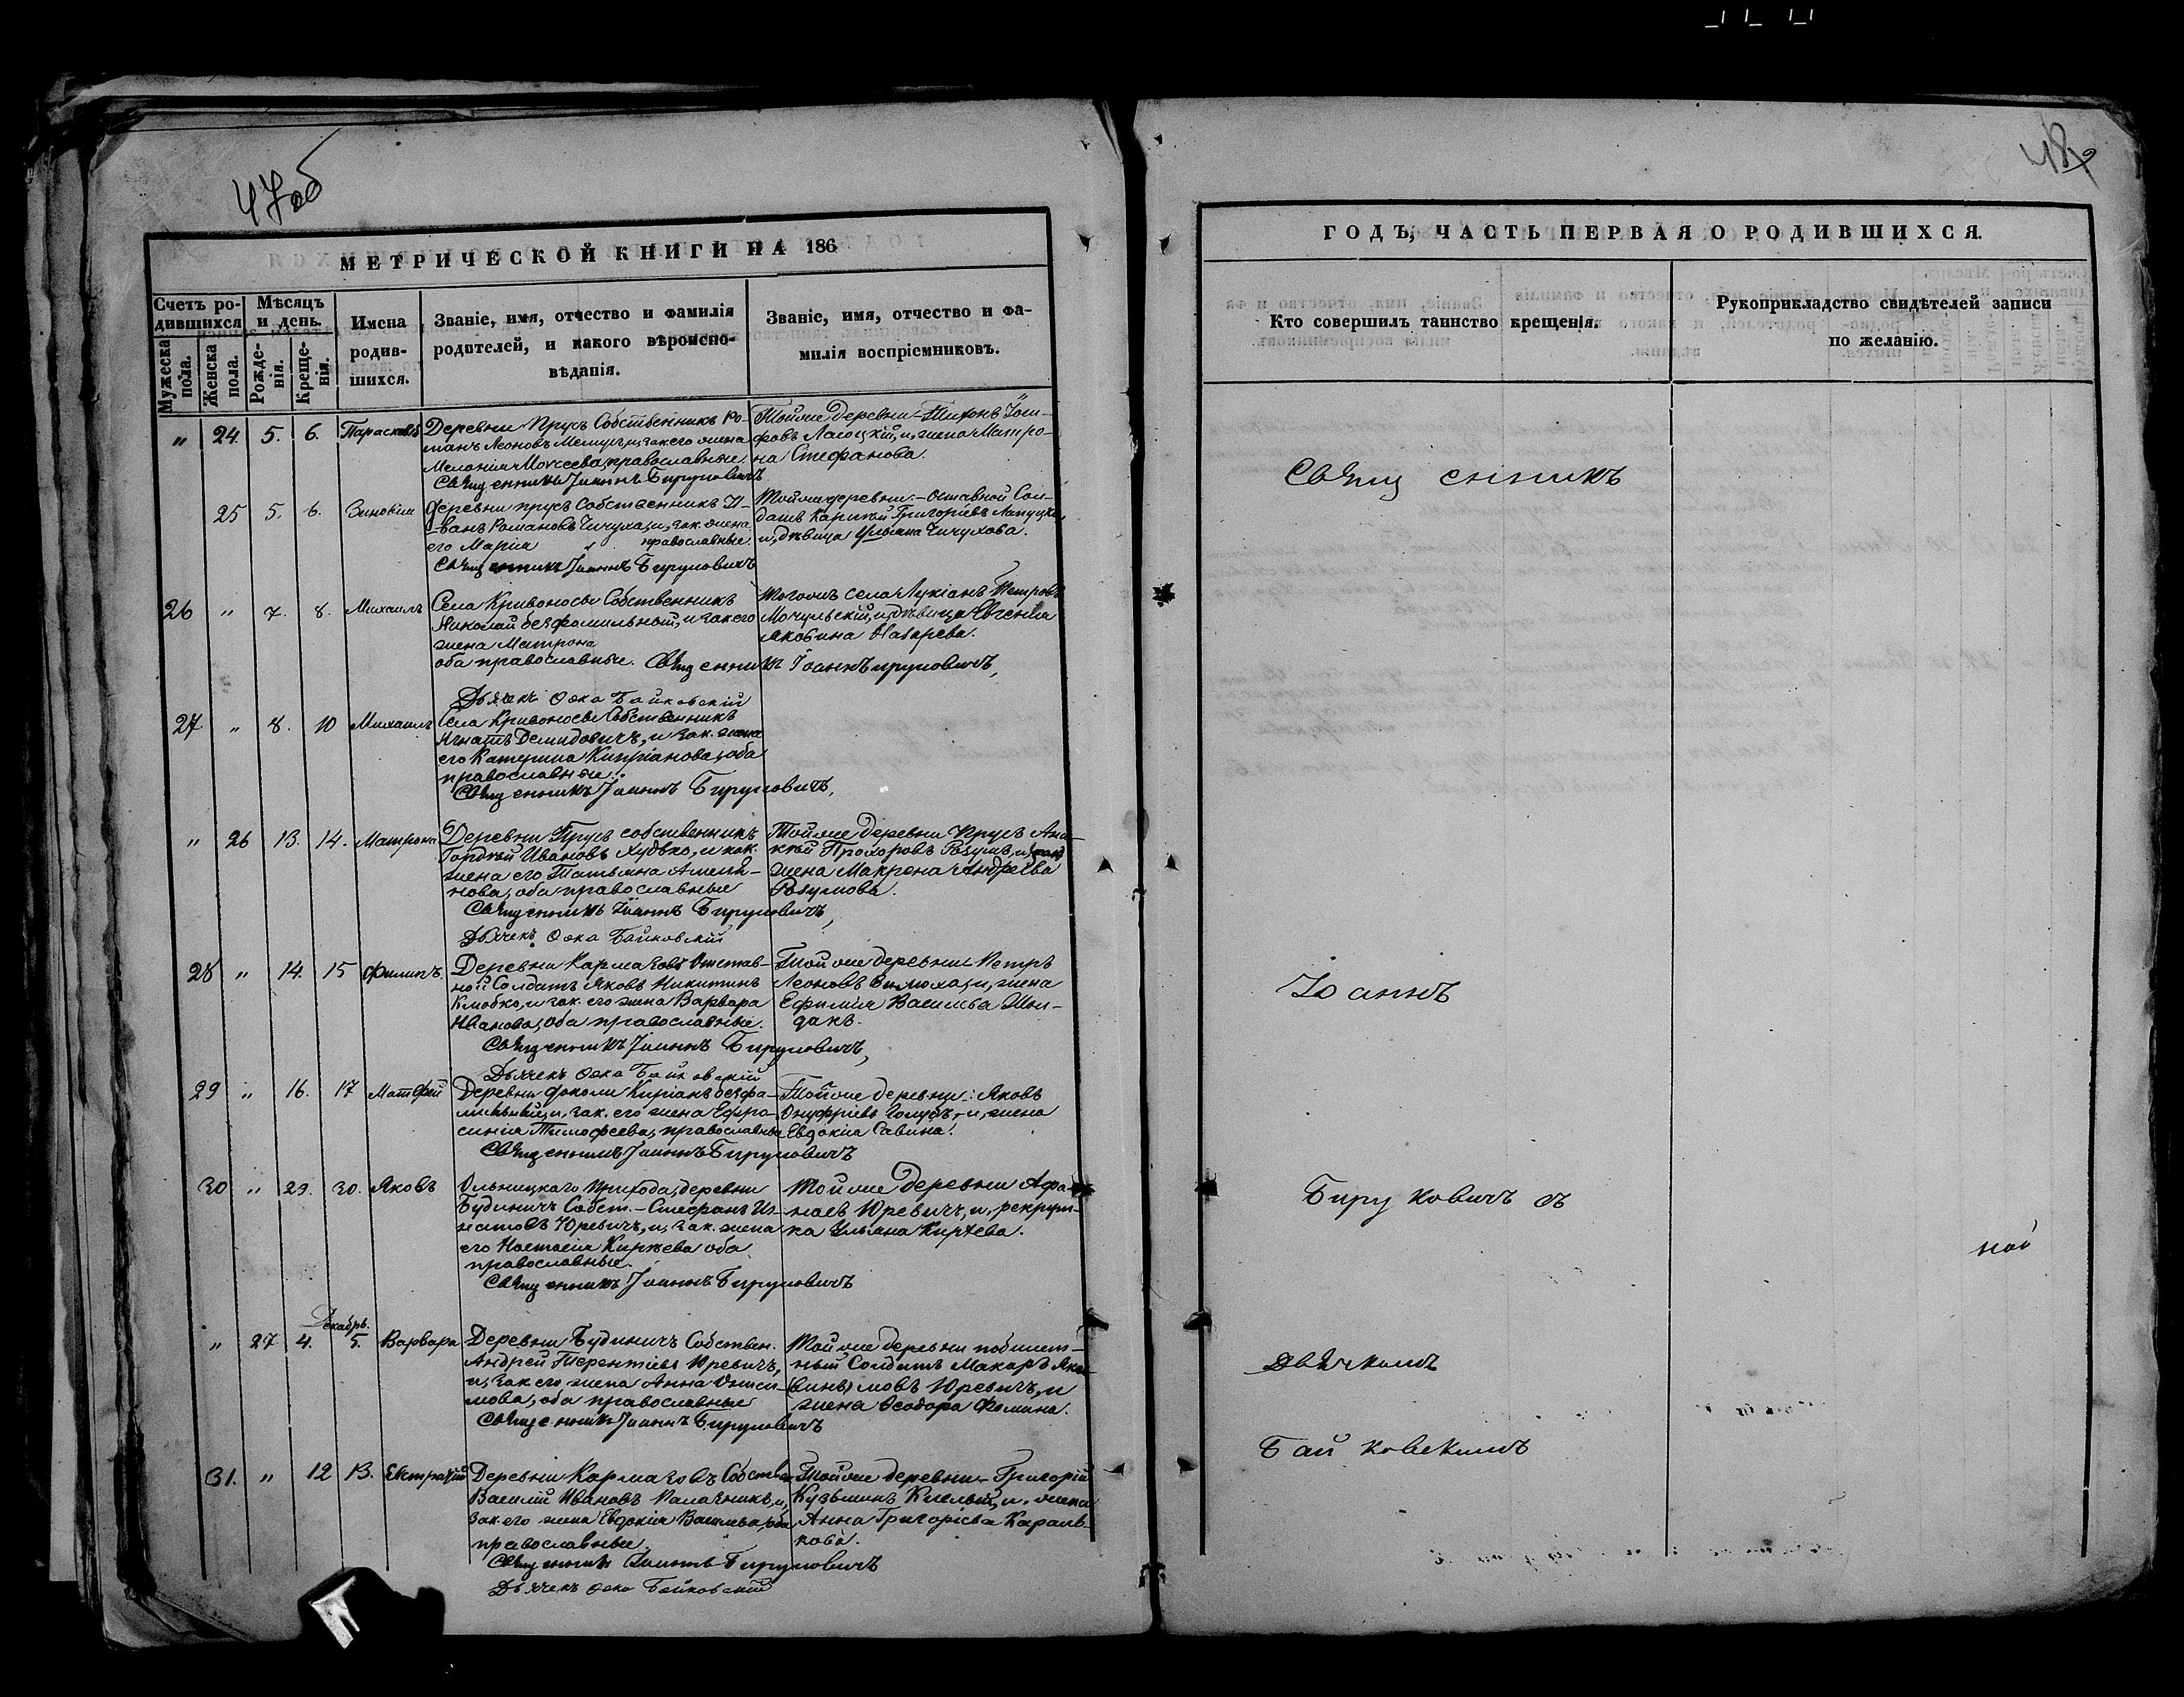 47об
48
МЕТРИЧЕСКОЙ КНИГИ НА 186
Счетъ родившихся
Мужеска пола.
Женска пола.
Мѣсяцъ и день.
Рожденія.
Крещенія.
Имена родившихся.
Званіе, имя, отчество и фамилія родителей, и какого вѣроисповѣданія.
Званіе, имя, отчество и фамилія воспріемниковъ.
„ 24. 5. 6. Параскева
Деревни Прусъ Собственникъ Ро-
манъ Леоновъ и, зак его жена
Меланія Моѵсеева, православные.
Тойже деревни Тихонъ Іоси-
фовъ и, жена Матро-
на Стефанова.
Священникъ Іоаннъ Бируковичъ
25 5. 6. Зиновія
Деревни Прусъ Собственникъ И-
ванъ Романовъ Чичуха, и, зак. жена
его Марія православные.
Тойже деревни Отставной Сол-
датъ Григоріевъ
и, дѣвица Ульяна Чичухова.
Священникъ Іоаннъ Бируковичъ
26 „ 7. 8. Михаилъ
Села Кривоносы Собственникъ
Николай безфамильный, и зак его
жена Матрона
оба православные.
Тогожъ села Лукіанъ Петровъ
Мочульскій, и, дѣвица Евгенія
Яковина Назарева.
Священникъ Іоаннъ Бируковичъ,
Дьячекъ Ѳока Байковскій
27 „ 8. 10 Михаилъ
Села Кривоносы Собственникъ
Игнатъ Демидовичъ, и зак. жена
его Катерина Кипріанова, оба
православные.
Священникъ Іоаннъ Бируковичъ,
„ 26 13. 14. Матрона
Деревни Прусъ собственникъ
Гордѣй Ивановъ Худько, и зак.
жена его Татьяна Амелья-
нова, оба православные
Тойже деревни Прусъ Ани-
кѣй Прохоровъ Розумъ, и, зак
жена Макрена Андреева
Розумова.
Священникъ Іоаннъ Бируковичъ,
Дьячекъ Ѳока Байковскій
28 „ 14. 15 Филипъ.
Деревни Кармазовъ Отстав-
ной Солдатъ Яковъ Никитинъ
Клюбко, и зак. его жена Варвара
Иванова, оба православные.
Тойже деревни Петръ
Леоновъ и, жена
Ефимія Васильева
Священникъ Іоаннъ Бируковичъ,
Дьячекъ Ѳока Байковскій
29 „ 16. 17 Матѳей
Деревни безфа-
мильный, и, зак. его жена Ефро-
синія Тимофеева, православные
Тойже деревни: Яковъ
Онуфріевъ Голубъ, и, жена
Евдокіа Савина.
Священникъ Іоаннъ Бируковичъ
30 „ 29. 30. Яковъ
прихода, деревни
Будиничъ Собст. Стефанъ Иг-
натовъ Юревичъ, и, зак. жена
его Настасія Киреева оба
православные.
Тойже деревни Афа-
наев Юревичъ, и, рекрут-
ка Ульяна Киреева.
Священникъ Іоаннъ Бируковичъ
Декабрь.
„ 27 4. 5. Варвара
Деревни Будиничъ Собствен.
Андрей Терентіевъ Юревичъ,
и, зак его жена Анна Ониси-
мова, оба православные
Тойже деревни побилет-
ный Солдатъ Макаръ Яки-
(винъ) мовъ Юревичъ, и
жена Ѳеодора Фомина.
Священникъ Іоаннъ Бируковичъ
31. „ 12 13. Евстратій
Деревни Кармазовъ Собствен
Василій Ивановъ и,
зак. его жена Евдокіа Васильева, оба
православные.
Тойже деревни Григорій
Кузьминъ и, жена
Анна Григоріева Караль-
кова.
Священникъ Іоаннъ Бируковичъ
Дьячекъ Ѳока Байковскій
ГОДЪ, ЧАСТЬ ПЕРВАЯ О РОДИВШИХСЯ.
Кто совершилъ таинство крещенія.
Рукоприкладство свидѣтелей записи по желанію.
Священникъ
Іоаннъ
Бируковичъ съ
Дьячкомъ
Байковскимъ